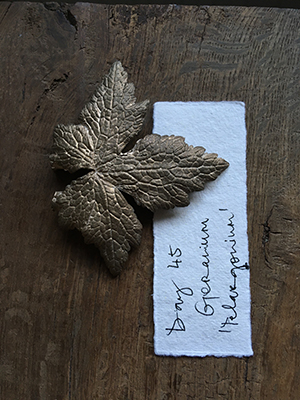 Day 45
Geranium
'Pelargonium'